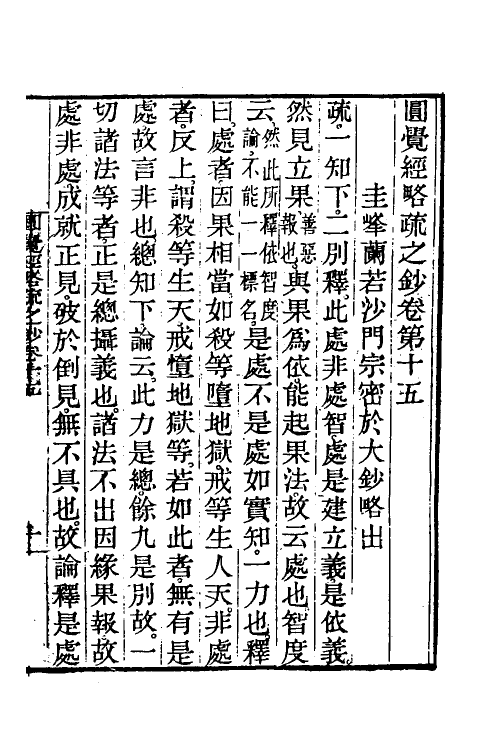 圓覺經略疏之鈔卷第十五
圭峯蘭若沙門宗密於大鈔略出
疏。一知下。二別釋。此處非處智。處是建立義。是依義。
然見立果。善惡報也。與果爲依。能起果法。故云處也。智度
云。然此所釋依智度論。不能一一標名。是處不是處如實知。一力也。釋
曰。處者。因果相當。如殺等墮地獄。戒等生人天。非處
者。反上。謂殺等生天。戒憻地獄等。若如此者。無有是
處。故言非也。總知下。論云。此力是總。餘九是別故。一
切諸法等者。正是總攝義也。諸法不出因緣果報。故
處非處。成就正見。破於倒見。無不具也。故論釋是處
圓覺經略疏之鈔卷十五